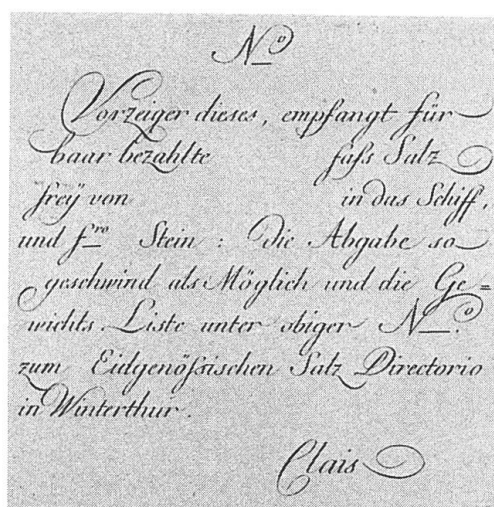 No
Vorzeiger dieses, empfangt für
baar bezahlte fass Salz
freÿ von in das Schiff,
und fro Stein : Die Abgabe so
geschwind als Möglich und die Ge=
wichts Liste unter obiger No.
zum Eidgenössischen Salz Directorio
in Winterthur.
Clais